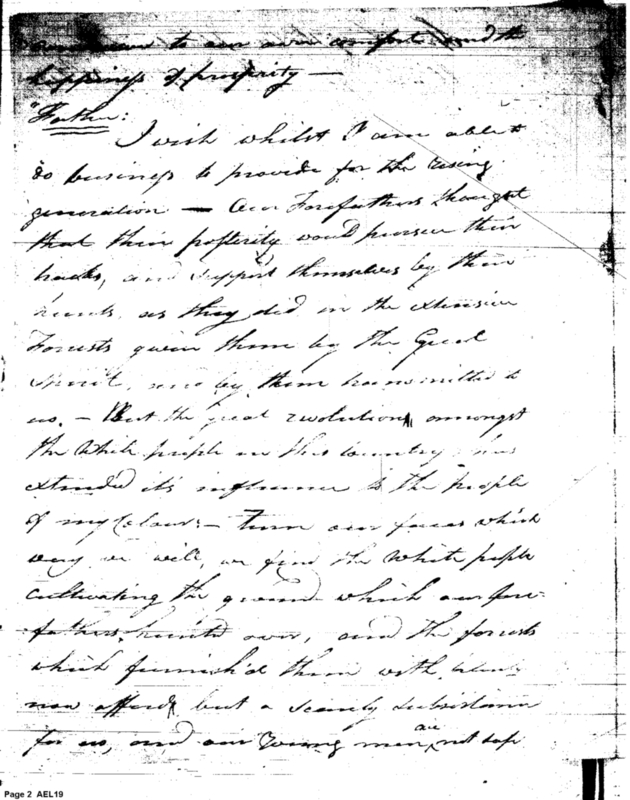 to our own comforts and the
happiness of prosperity —
"Father:
I wish whilst I am able to
do business to provide for the rising
generation — Our Forefathers thought
that their posterity would pursue their
tracks, and support themselves by their
hunts, as they did in the extensive
Forests given them by the Great
Spirit, and by them transmitted to
us. — But the great revolutions amongst
the White people in this Country has
extended it's influence to the people
of my Colour: — Turn our faces which
way we will, we find the White people
cultivating the ground which our fore-
fathers hunted over, and the forests
which furnish'd them with
now affords but a scanty subsistance
for us, and our Young men are not safe
Page 2 AEL19